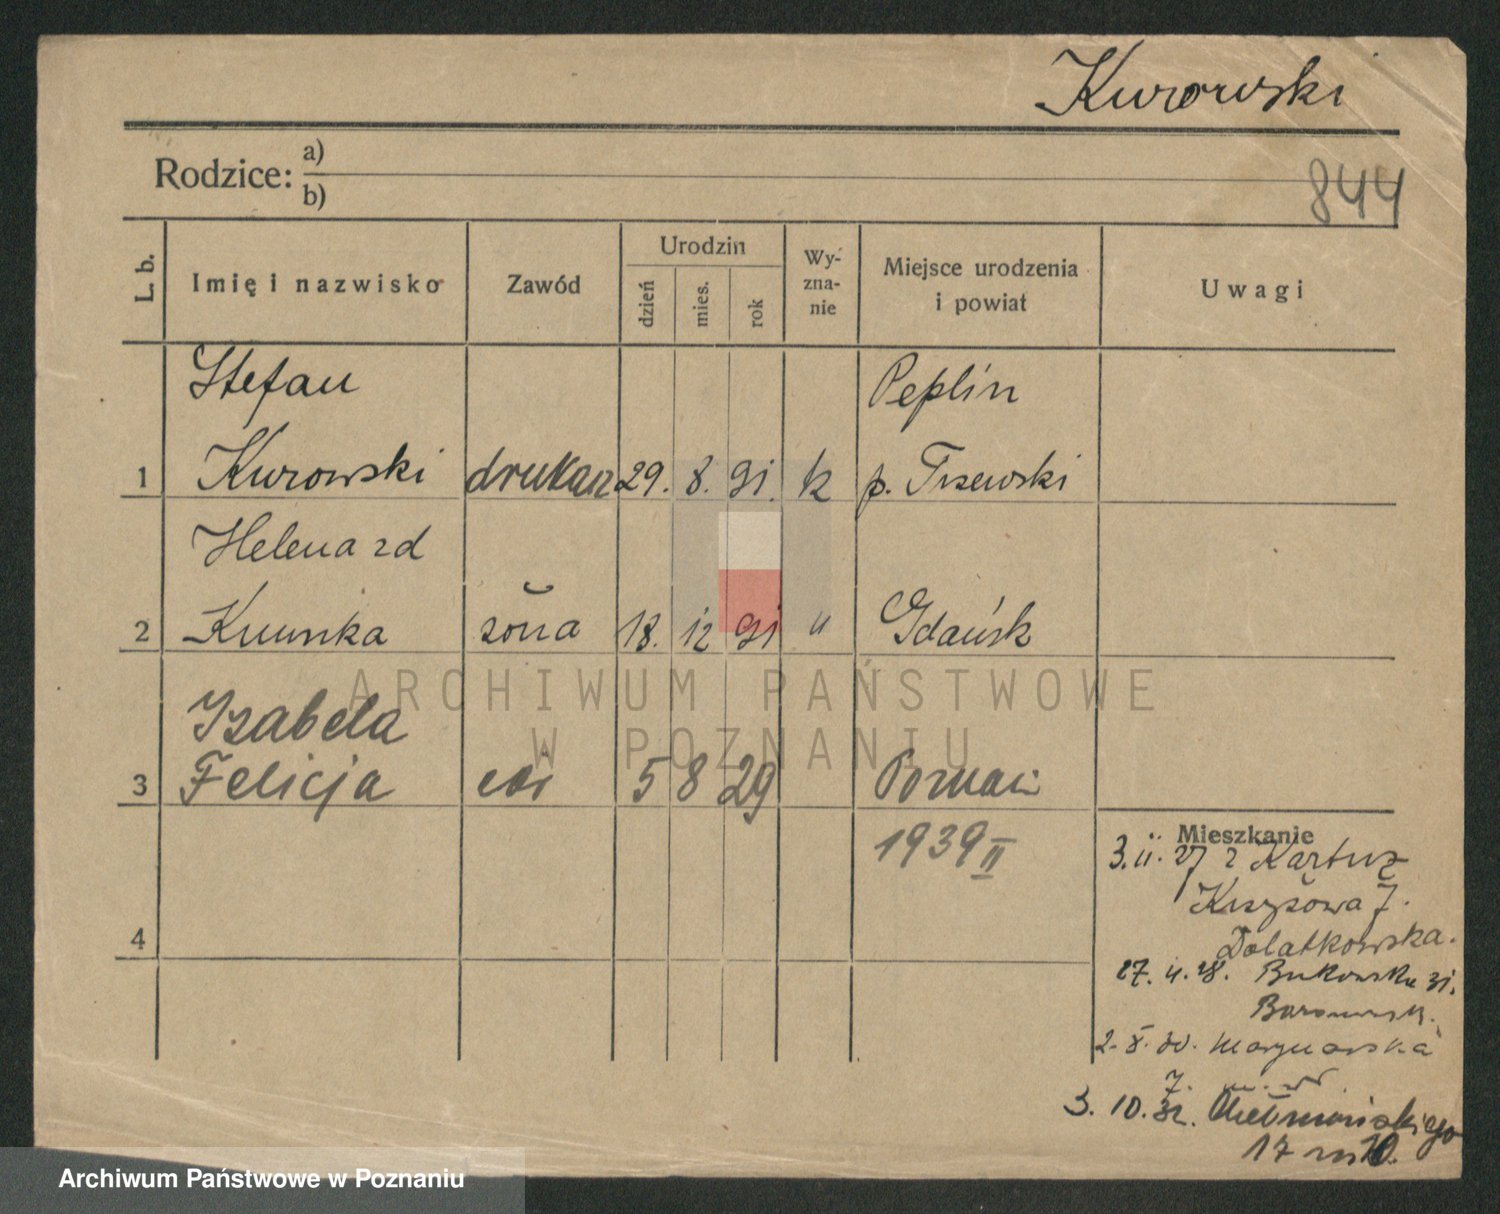 Kurowski
Rodzice: a)
b)
844
L. b.
Imię i nazwisko
Zawód
Urodzin
dzień
mies.
rok
Wy-
zna-
nie
Miejsce urodzenia
i powiat
Uwagi
Stefan
Peplin
1 Kurowski drukarz 29. 8. 91. k p. Tczewski
Helena zd
2 żona 18. 12 91 " Gdańsk
Izabela
3 Felicja 5 8 29 Poznań
1939 II
4
Mieszkanie
3. 11. 27 z Kartuz
Krzyżowa 7.
Dolatkowska.
27. 4. 28. Bukowska 31.
2. X. 30. Marynarska
7.
3. 10. 32. Chełmońskiego
17 m 10.
ARCHIWUM PAŃSTWOWE
W POZNANIU
Archiwum Państwowe w Poznaniu